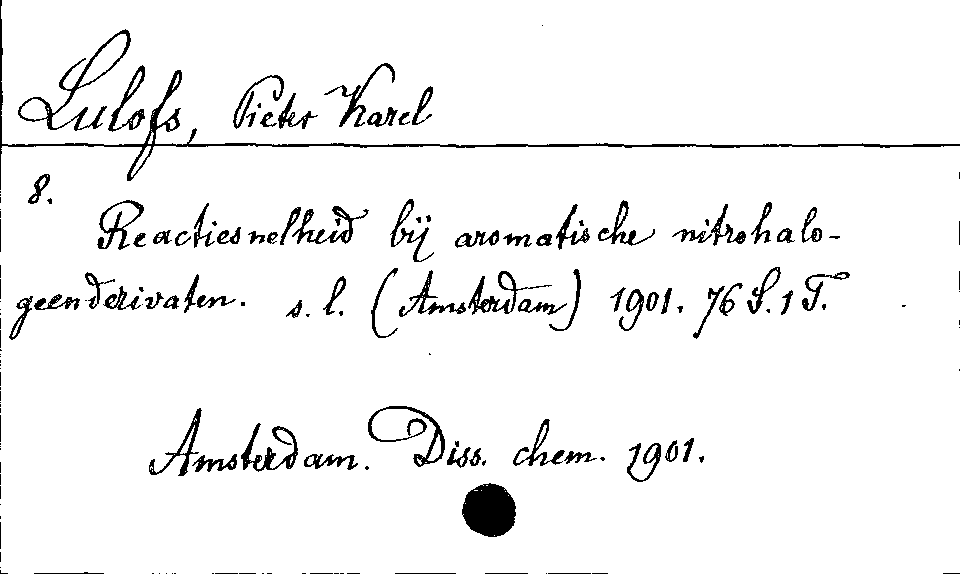 Lulofs, Pieter Karel
8.
Reactiesnelheid bij aromatische nitrohalo-
geenderivaten. s. l. (Amsterdam) 1901. 76 S. 1 T.
Amsterdam. Diss. chem. 1901.